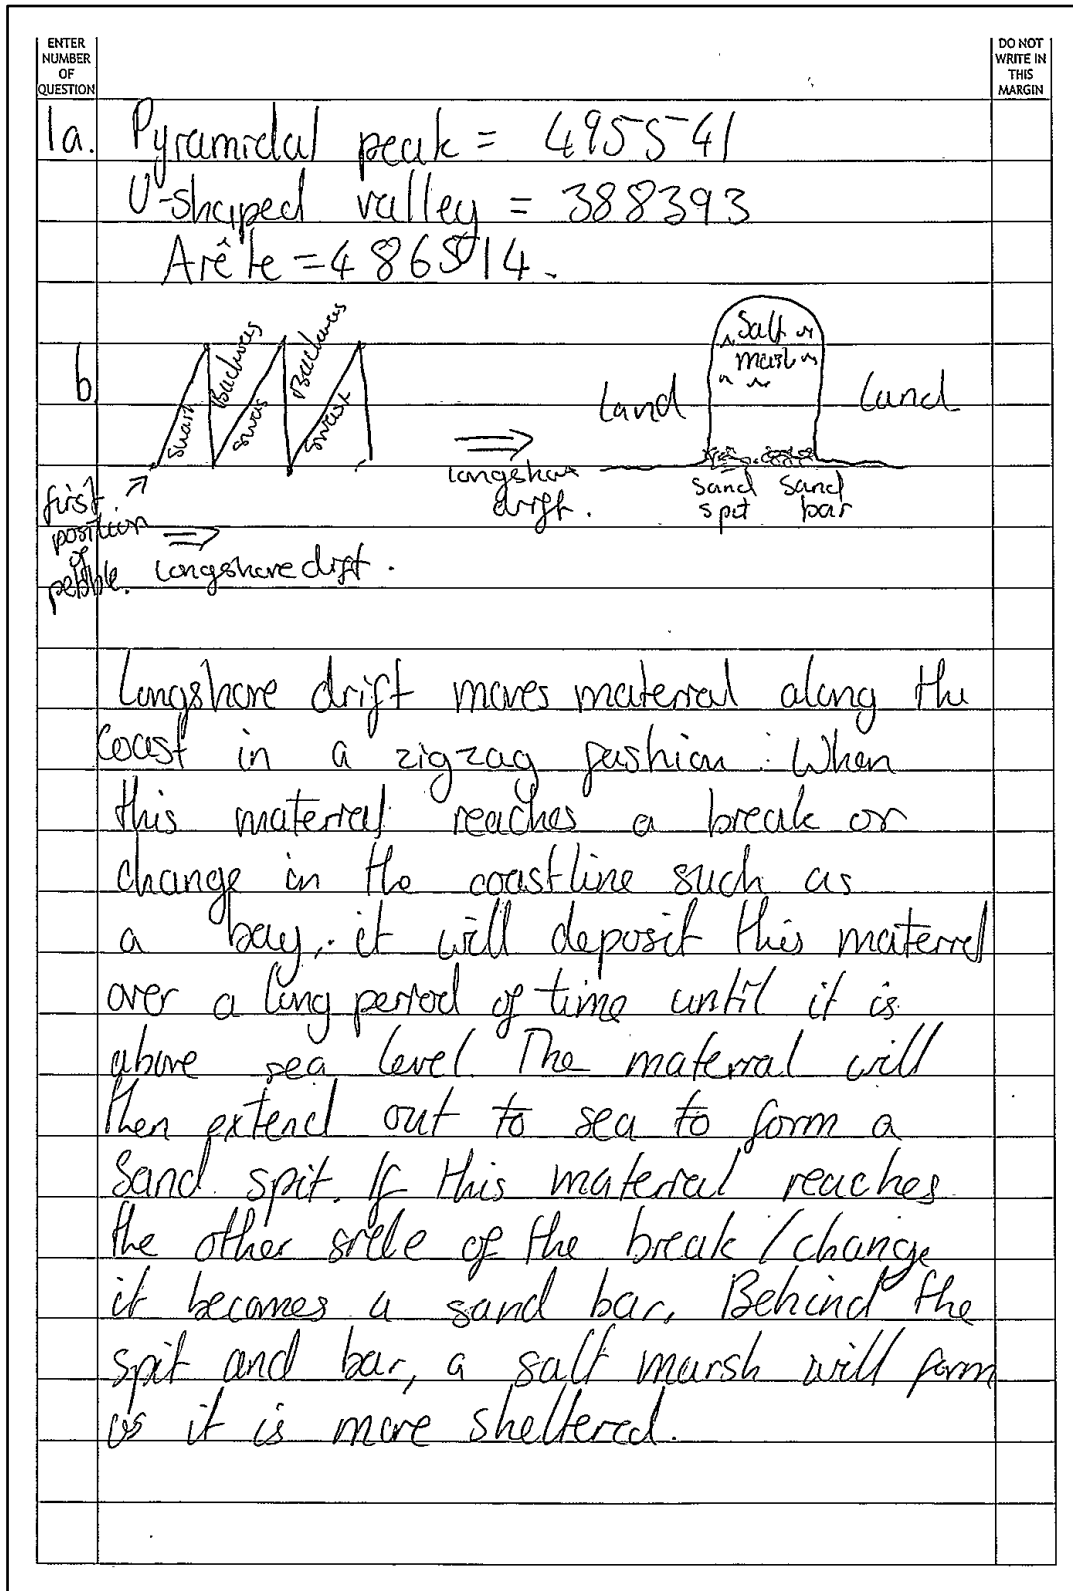 ENTER
NUMBER
OF
QUESTION
DO NOT
WRITE IN
THIS
MARGIN
1a. Pyramidal peak = 495541
U-shaped valley = 388393
Arête = 486514.
b
Swash
Backwas
Swas
Backwas
Swash
first
position
of
pebble.
longshore drift.
longshore
drift.
Land
Salt
marsh
Land
sand
spit
sand
bar
Longshore drift moves material along the
coast in a zigzag fashion. When
this material reaches a break or
change in the coastline such as
a bay, it will deposit this material
over a long period of time until it is
above sea level. The material will
then extend out to sea to form a
Sand spit. If this material reaches
the other side of the break/change
it becomes a sand bar. Behind the
spit and bar, a salt marsh will form
as it is more sheltered.